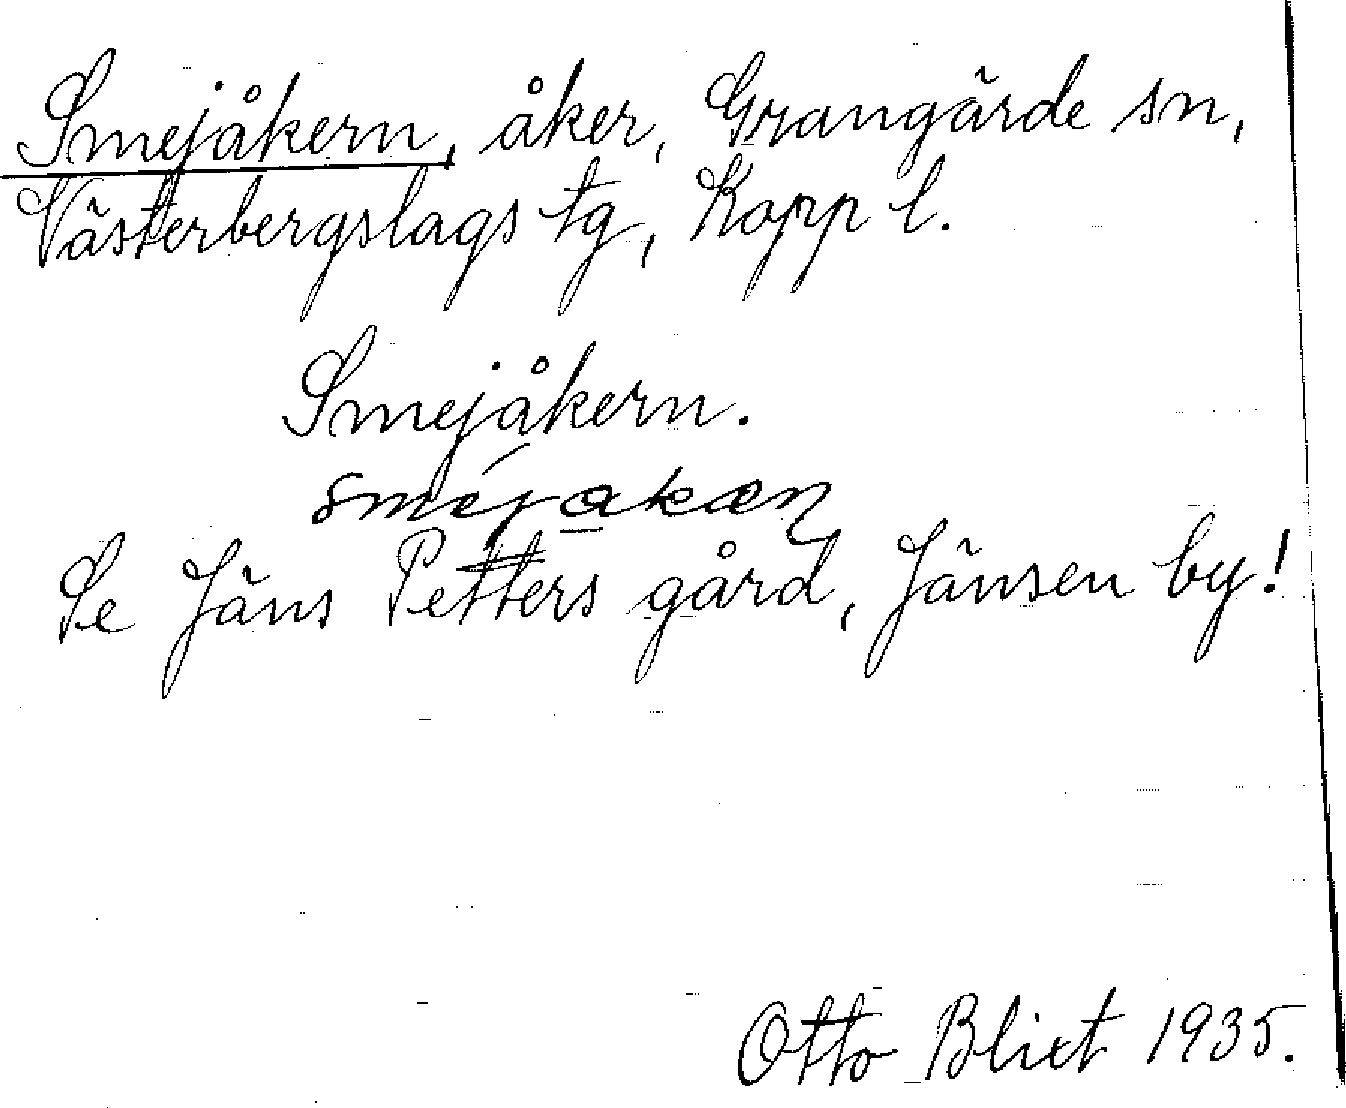 Smejåkern, åker, Grangärde sn,
Västerbergslags tg, Kopp l.
Smejåkern.
Se Jäns Petters gård, Jänsen by!
Otto Blixt 1935.